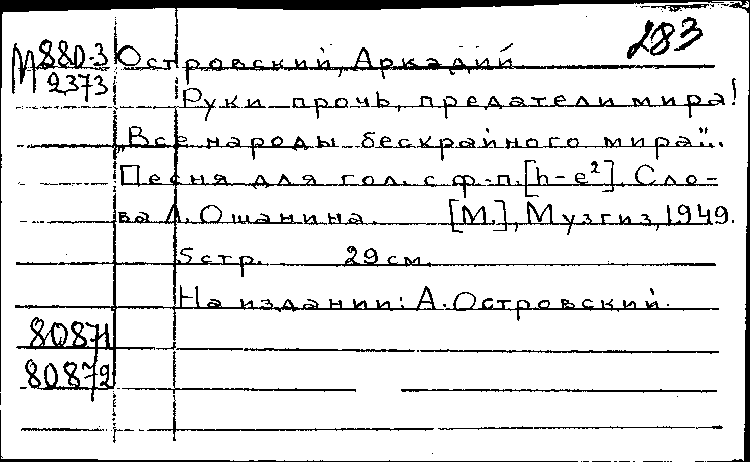 283
М 880-3 Островский, Аркадий
2373
Руки прочь, предатели мира!
„Все народы бескрайного мира“..
Песня для гол. с ф-п. [h-e²]. Сло-
ва Л. Ошанина. [М.], Музгиз, 1949.
5 стр. 29 см.
На издании: А. Островский.
80871
80872